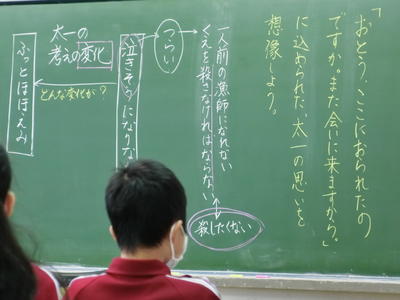 「おとう、ここにおられたの
ですか。また会いに来ますから。」
に込められた、太一の思いを
想像しよう。
一人前の漁師になれない
くえを殺さなければならない
殺したくない
つらい
泣きそうになりな
太一の
考えの変化
どんな変化が？
ふっとほほえみ